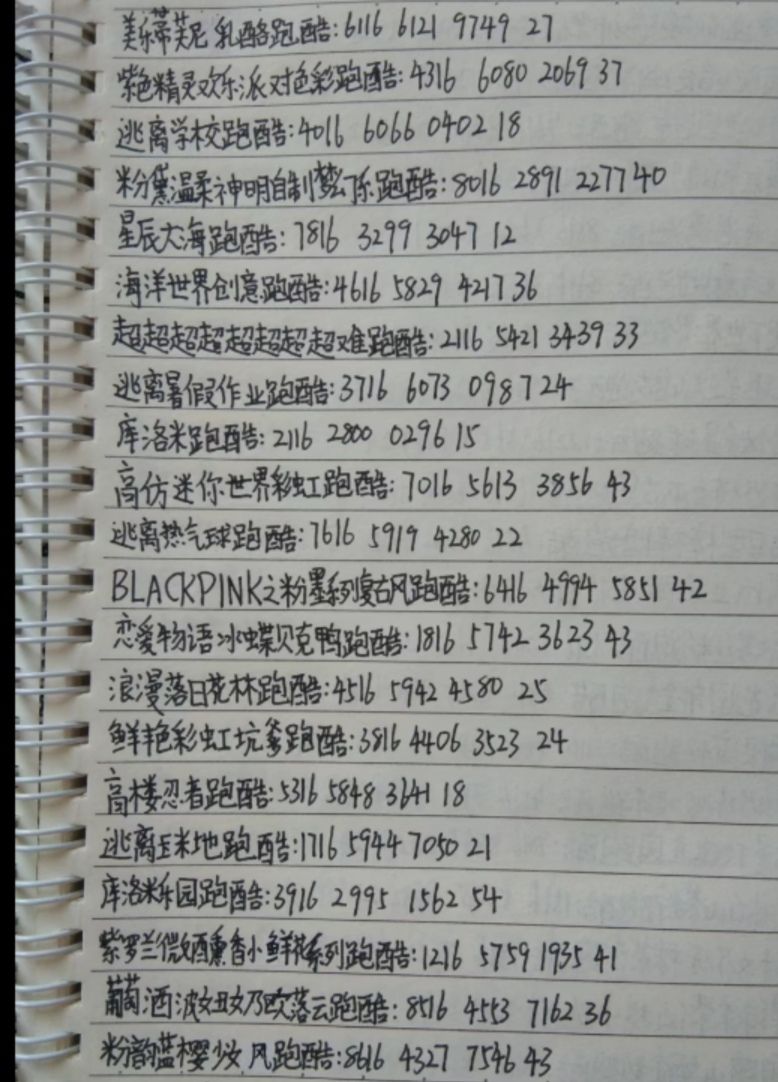 美乐蒂芙尼乳酪跑酷:6116 6121 9749 27
紫色精灵欢乐派对色彩跑酷:4316 6080 2069 37
逃离学校跑酷:4016 6066 0402 18
粉黛温柔神明自制梦幻乐跑酷:8016 2891 2277 40
星辰大海跑酷:7816 3299 3047 12
海洋世界创意跑酷:4616 5829 4217 36
超超超超超超超超难跑酷:2116 5421 3439 33
逃离暑假作业跑酷:3716 6073 0987 24
库洛米跑酷:2116 2800 0296 15
高仿迷你世界彩虹跑酷:7016 5613 3856 43
逃离热气球跑酷:7616 5919 4280 22
BLACKPINK之粉墨系列复古风跑酷:6416 4994 5851 42
恋爱物语冰蝶贝克鸭跑酷:1816 5742 3623 43
浪漫落日花林跑酷:4516 5942 4580 25
鲜艳彩虹坑爹跑酷:3816 4406 3523 24
高楼忍者跑酷:5316 5848 3641 18
逃离玉米地跑酷:1716 5944 7050 21
库洛米乐园跑酷:3916 2995 1562 54
紫罗兰微酒熏香小鲜花系列跑酷:1216 5759 1935 41
葡萄酒波妞奶欧落云跑酷:8516 4553 7162 36
粉韵蓝樱少女风跑酷:8616 4327 7546 43